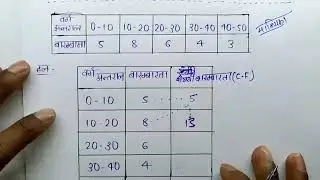 वर्ग अन्तराल 0-10 10-20 20-30 30-40 40-50
बारम्बारता 5 8 6 4 3
हल-
वर्ग अन्तराल बारम्बारता बारम्बारता (C.F)
0-10 5 5
10-20 8 13
20-30 6
30-40 4